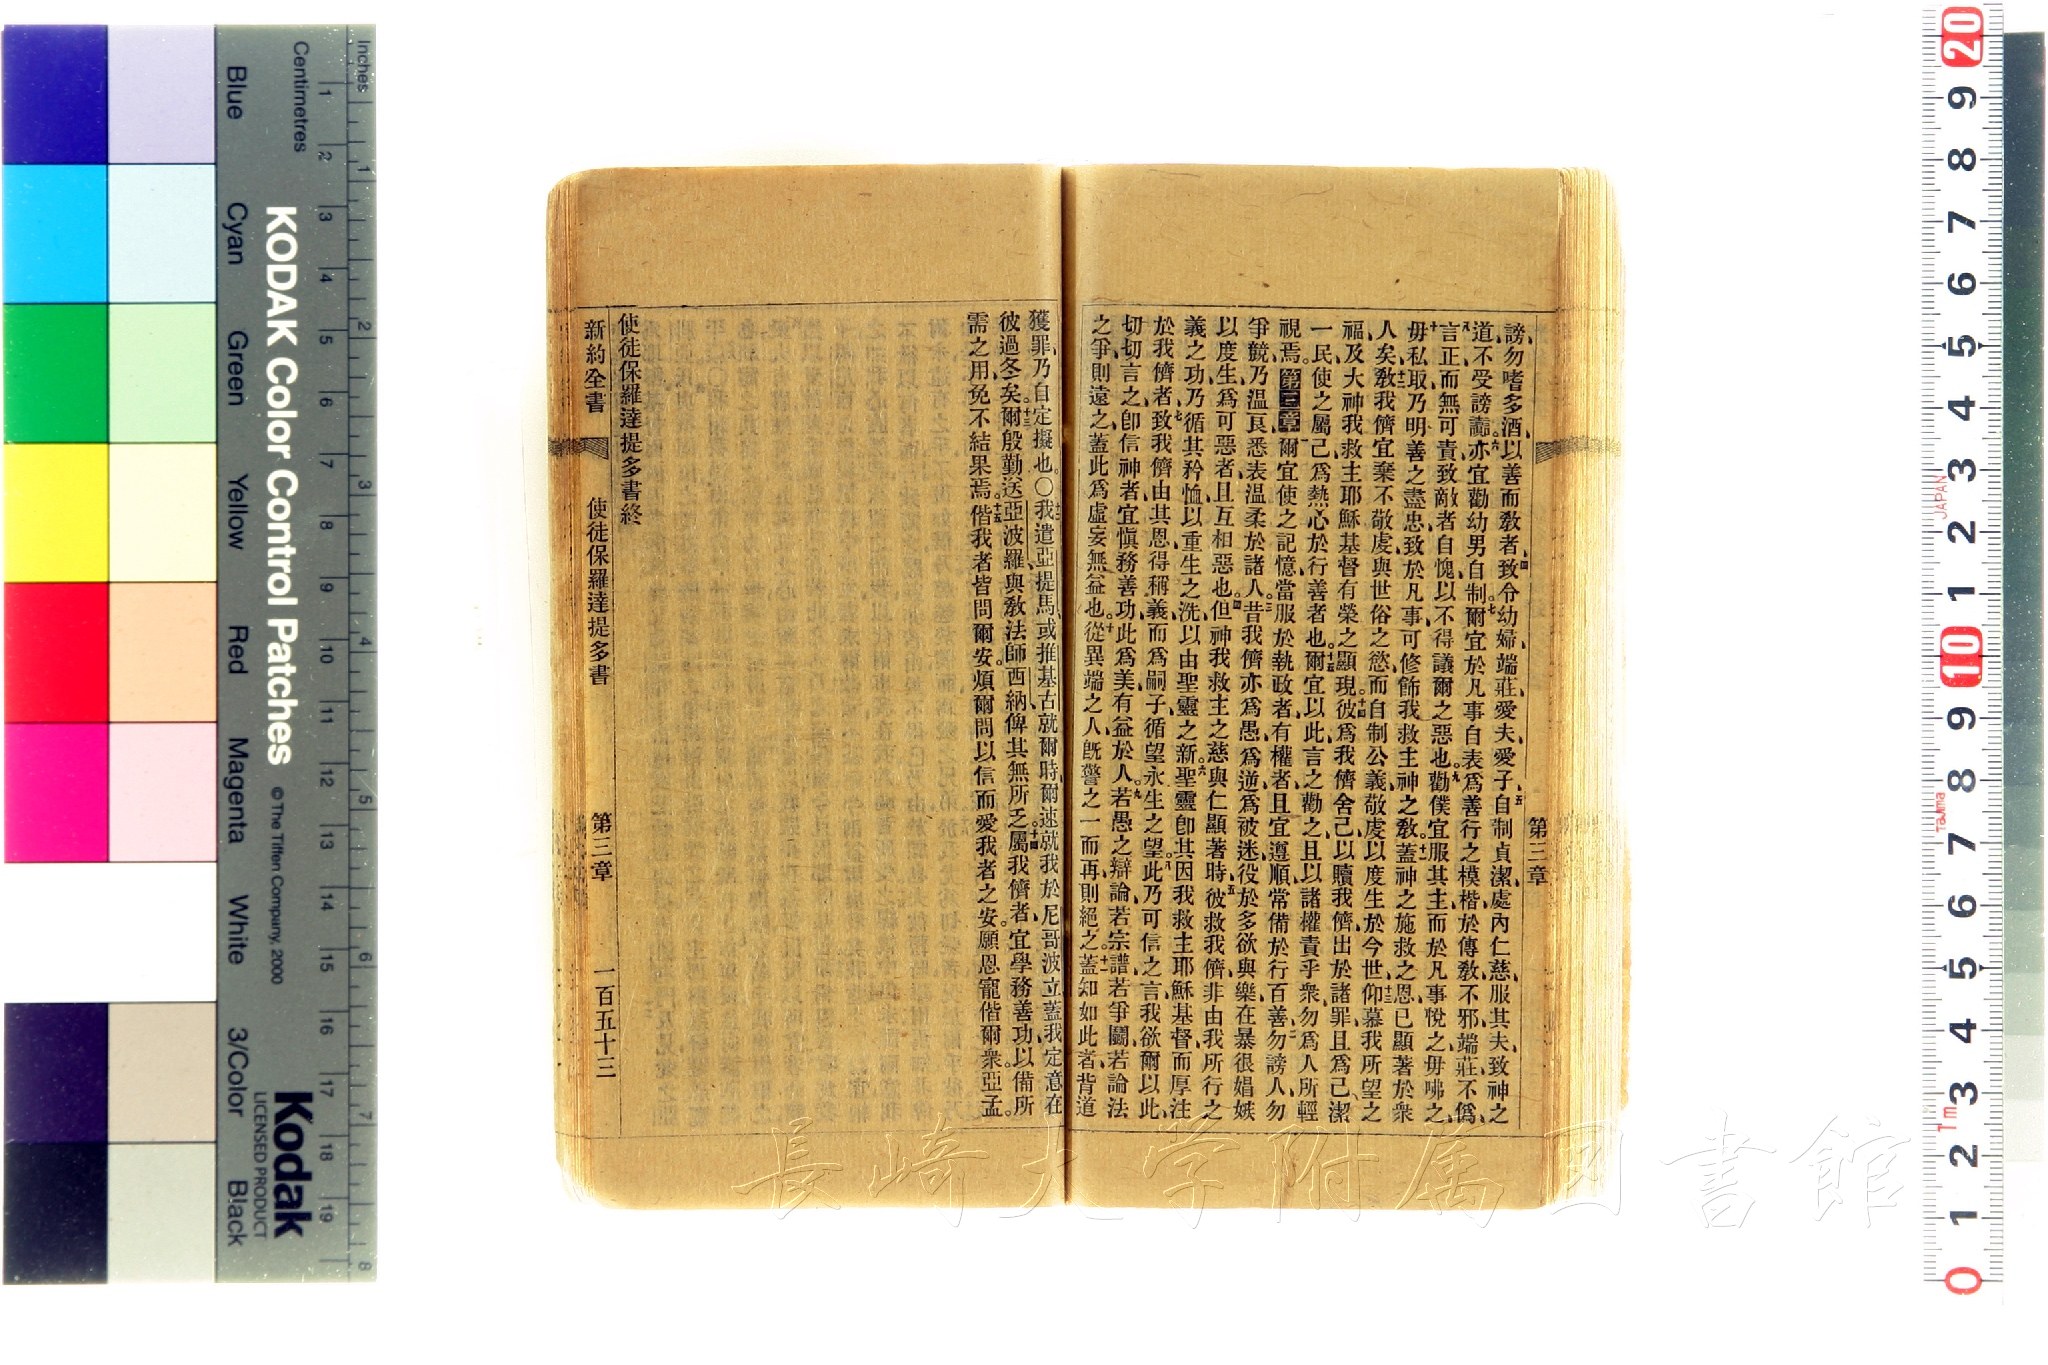 第三章
謗、勿嗜多酒、以善而敎者、四致令幼婦端莊、愛夫、愛子、五自制、貞潔、處內、仁慈、服其夫、致神之
道、不受謗讟、六亦宜勸幼男自制、七爾宜於凡事自表爲善行之模楷、於傳敎、不邪、端莊、不僞、
八言正而無可責、致敵者自愧、以不得議爾之惡也、九勸僕宜服其主、而於凡事悅之、毋咈之、
十毋私取、乃明善之盡忠、致於凡事可修飾我救主神之敎、十一蓋神之施救之恩、已顯著於衆
人矣、十二敎我儕宜棄不敬虔、與世俗之慾、而自制、公義、敬虔、以度生於今世、十三仰慕我所望之
福、及大神我救主耶穌基督有榮之顯現、十四彼爲我儕舍己、以贖我儕出於諸罪、且爲己潔
一民、使之屬己、爲熱心於行善者也、十五爾宜以此言之、勸之、且以諸權責乎衆、勿爲人所輕
視焉。第三章爾宜使之記憶、當服於執政者、有權者、且宜遵順、常備於行百善、二勿謗人、勿
爭競、乃溫良、悉表溫柔於諸人、三昔我儕亦爲愚、爲逆、爲被迷、役於多欲與樂、在暴很娼嫉
以度生、爲可惡者、且互相惡也、四但神我救主之慈與仁顯著時、五彼救我儕、非由我所行之
義之功、乃循其矜恤、以重生之洗、以由聖靈之新、六聖靈卽其因我救主耶穌基督、而厚注
於我儕者、七致我儕由其恩得稱義、而爲嗣子、循望永生之望、八此乃可信之言、我欲爾以此
切切言之、卽信神者、宜愼務善功、此爲美、有益於人、九若愚之辯論、若宗譜、若爭鬬、若論法
之爭、則遠之、蓋此爲虛妄無益也、十從異端之人、旣警之一而再、則絕之、十一蓋知如此者背道
獲罪、乃自定擬也。○十二我遣亞提馬、或推基古就爾時、爾速就我於尼哥波立、蓋我定意在
彼過冬矣、十三爾殷勤送亞波羅與敎法師西納、俾其無所乏、十四屬我儕者、宜學務善功、以備所
需之用、免不結果焉、十五偕我者皆問爾安、煩爾問以信而愛我者之安、願恩寵偕爾衆。亞孟。
使徒保羅達提多書終
新約全書
使徒保羅達提多書
第三章
一百五十三
長崎大学附属図書館
Inches
Centimetres
Blue
Cyan
Green
Yellow
Red
Magenta
White
3/Color
Black
KODAK Color Control Patches © The Tiffen Company, 2000
Kodak
LICENSED PRODUCT
JAPAN
Tajima
Tm